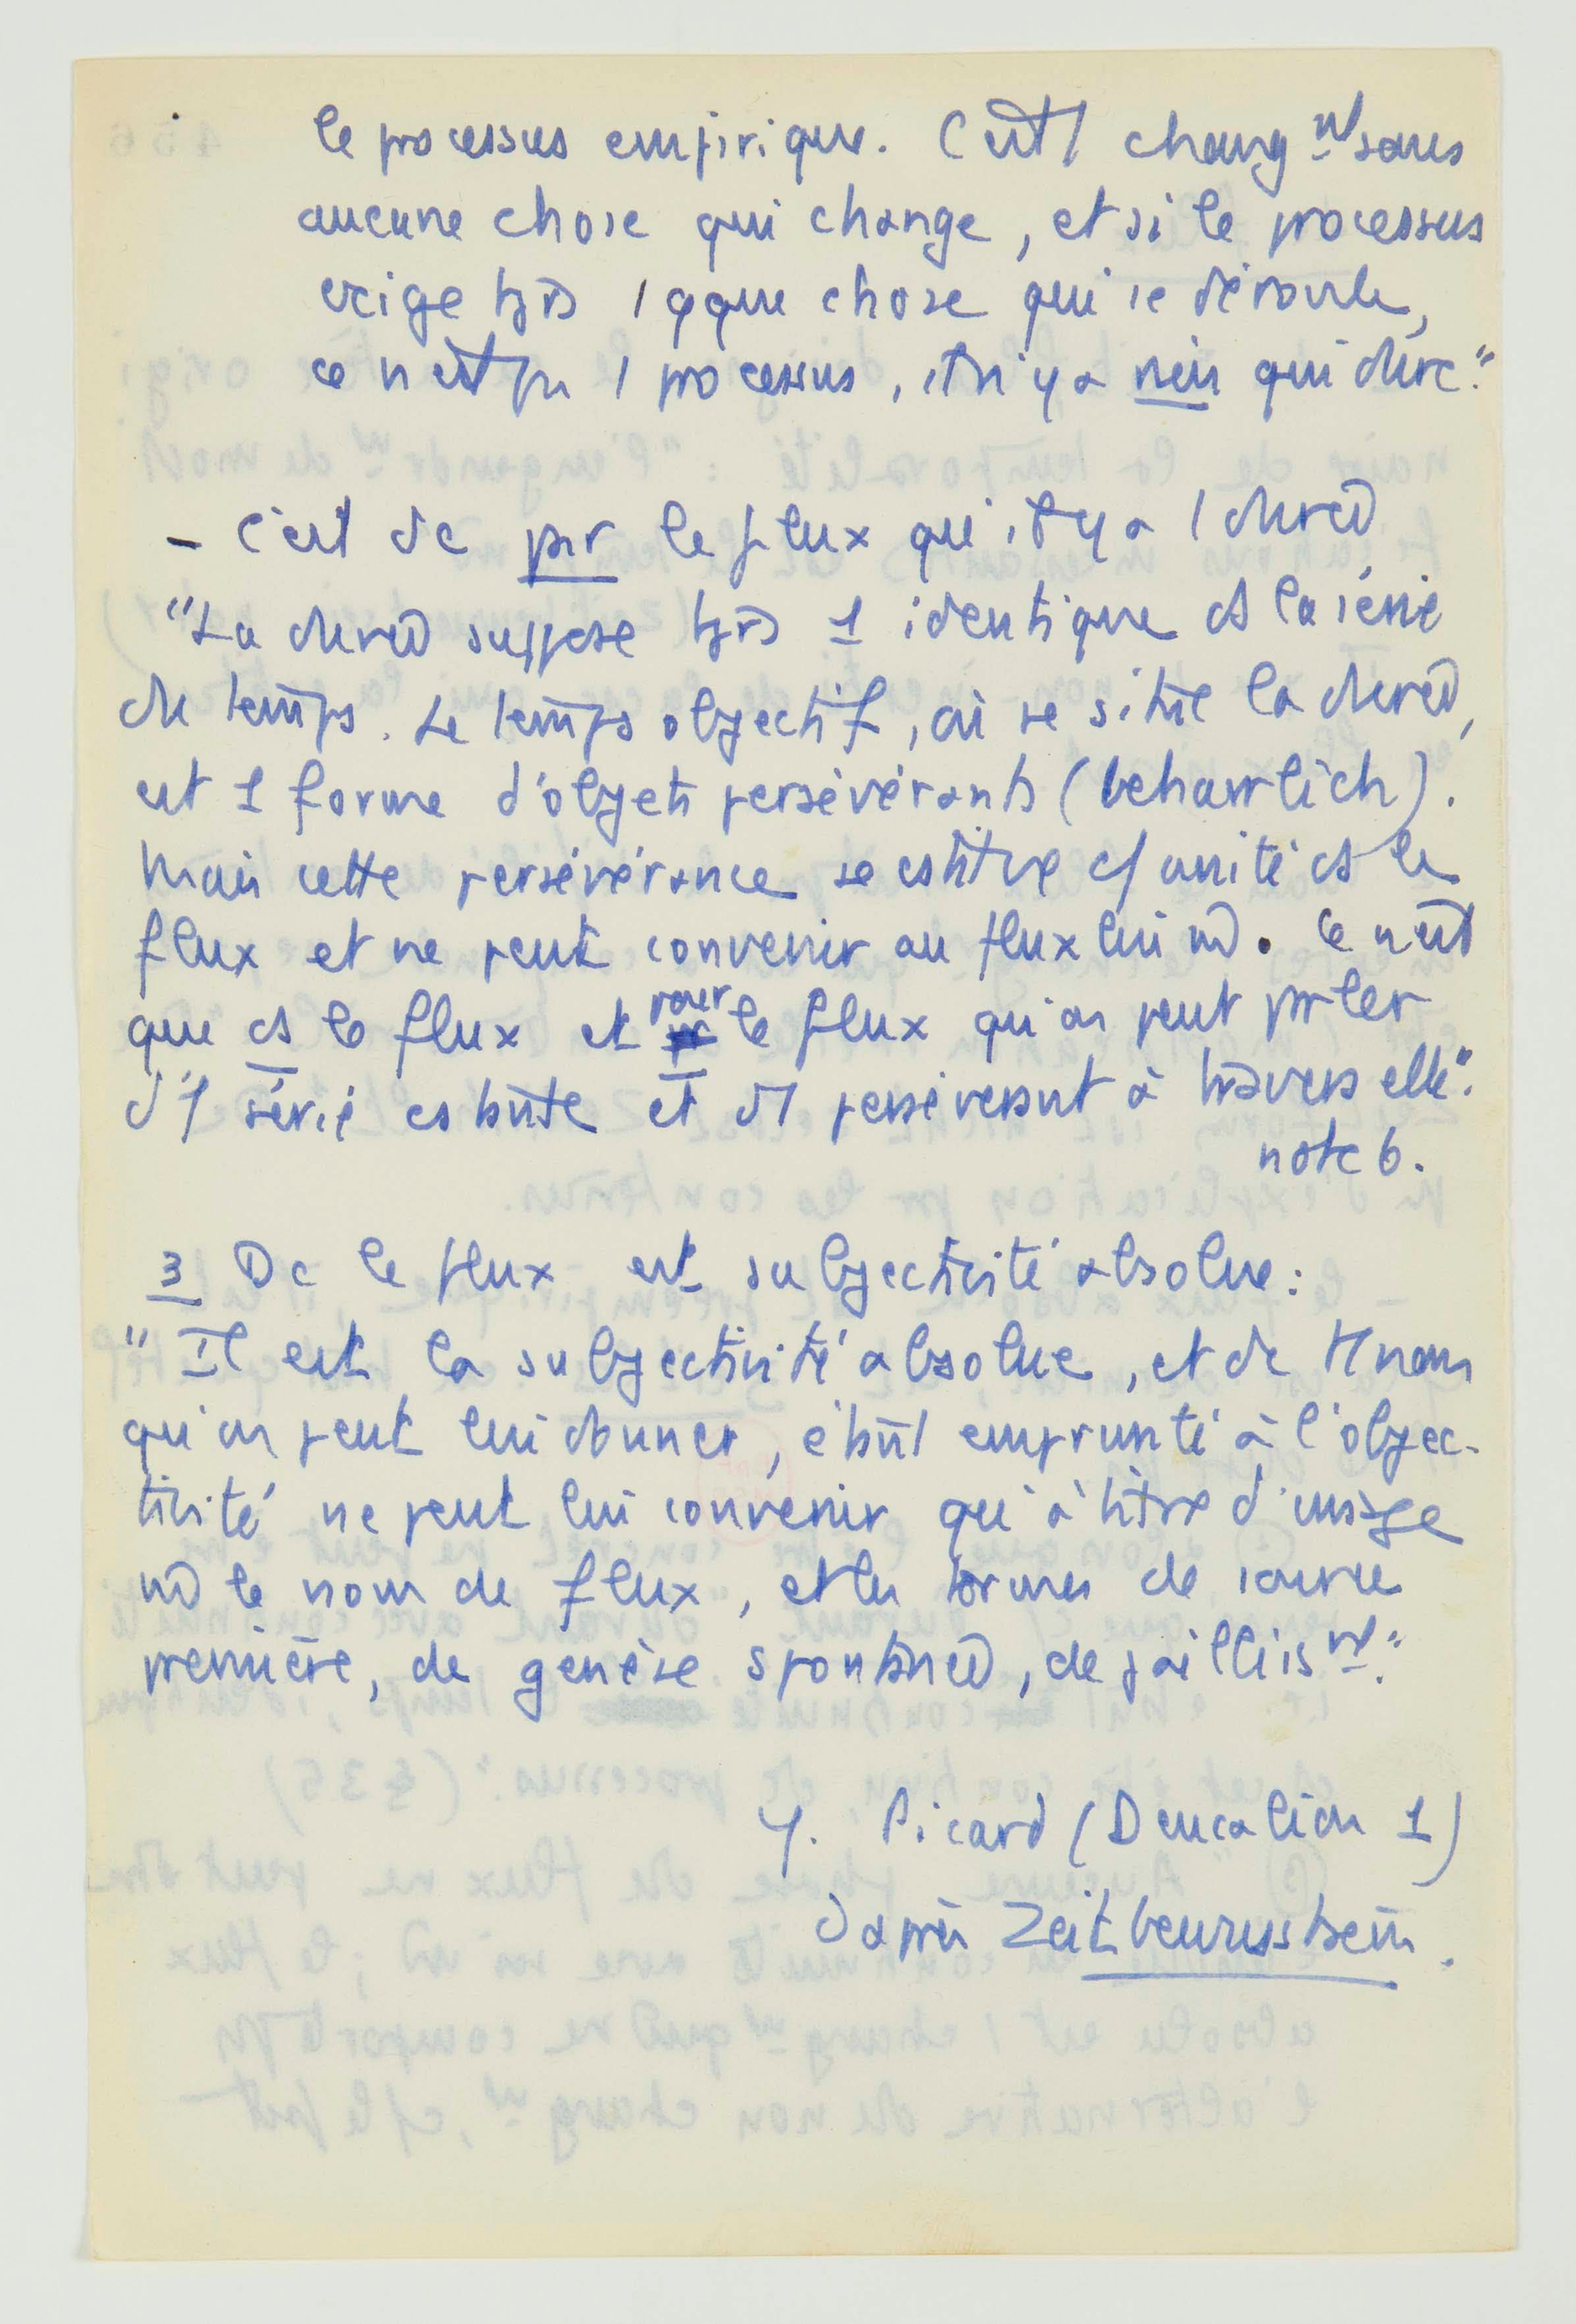 le processus empirique. C'est 1 changnt sans
aucune chose qui change, et si le processus
exige tjrs 1 qque chose qui se déroule,
ce n'est pas 1 processus, il n'y a rien qui dure."
- C'est dc par le flux qu'il y a 1 durée
"La durée suppose tjrs 1 identique ds la série
du temps. Le temps objectif, où se situe la durée,
est 1 forme d'objets persévérants (beharrlich).
Mais cette persévérance se cstitue c/ unité ds le
flux et ne peut convenir au flux lui m̂. Ce n'est
que ds le flux et pour le flux qu'on peut parler
d'1 série cstante et d'1 persévérant à travers elle".
note 6.
3 Dc le flux est subjectivité absolue :
"Il est la subjectivité absolue, et de tt nom
qu'on peut lui donner, étant emprunté à l'objec-
tivité ne peut lui convenir qu'à titre d'image
m̂ le nom de flux, et les termes de source
première, de genèse spontanée, de jaillisnt."
Y. Picard (Deucalion 1)
d'après Zeitbewusstsein.